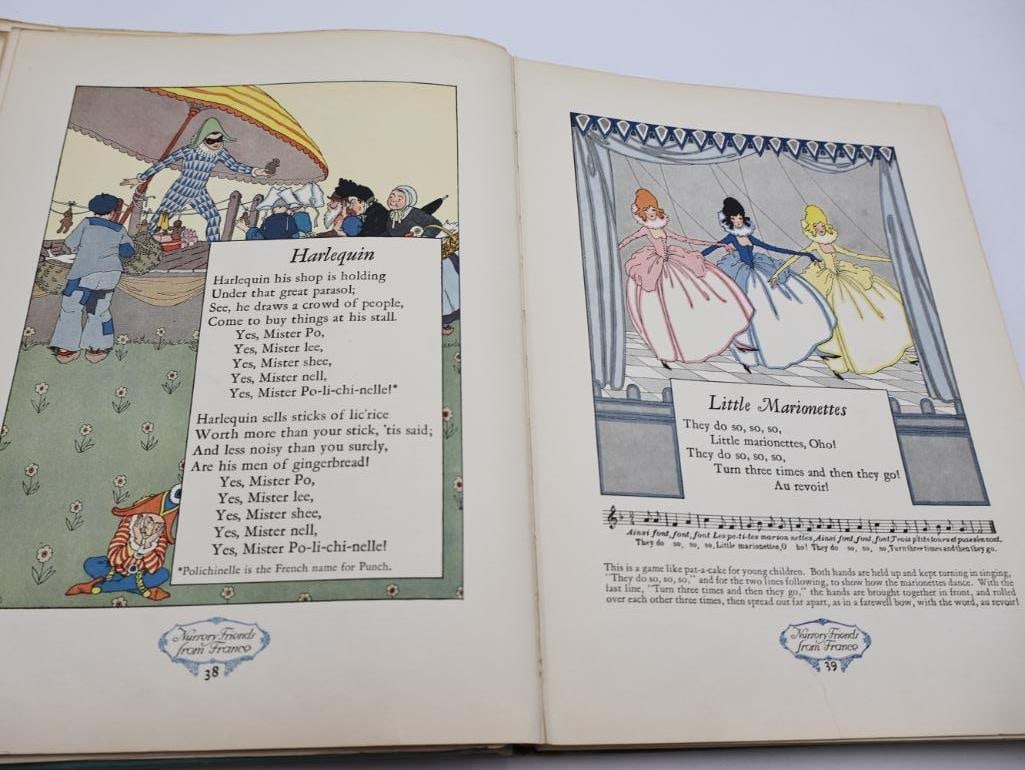 Harlequin
Harlequin his shop is holding
Under that great parasol;
See, he draws a crowd of people,
Come to buy things at his stall.
Yes, Mister Po,
Yes, Mister lee,
Yes, Mister shee,
Yes, Mister nell,
Yes, Mister Po-li-chi-nelle!*
Harlequin sells sticks of lic'rice
Worth more than your stick, 'tis said;
And less noisy than you surely,
Are his men of gingerbread!
Yes, Mister Po,
Yes, Mister lee,
Yes, Mister shee,
Yes, Mister nell,
Yes, Mister Po-li-chi-nelle!
*Polichinelle is the French name for Punch.
Nursery Friends
from France
38
Little Marionettes
They do so, so, so,
Little marionettes, Oho!
They do so, so, so,
Turn three times and then they go!
Au revoir!
Ainsi font, font, font Les pe-ti-tes marion nettes, Ainsi font, font, font, Trois p'tits tours et puis s'en vont.
They do so, so, so, Little marionettes, O ho! They do so, so, so, Turn three times and then they go.
This is a game like pat-a-cake for young children. Both hands are held up and kept turning in singing,
"They do so, so, so," and for the two lines following, to show how the marionettes dance. With the
last line, "Turn three times and then they go," the hands are brought together in front, and rolled
over each other three times, then spread out far apart, as in a farewell bow, with the word, au revoir!
Nursery Friends
from France
39